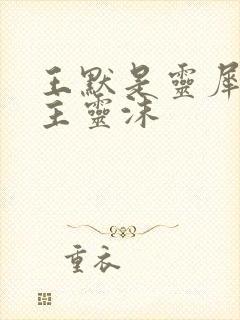 王默是靈犀
主靈沫
重衣